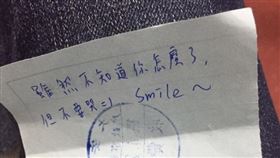 雖然不知道你怎麼了,
但不要哭=) smile~